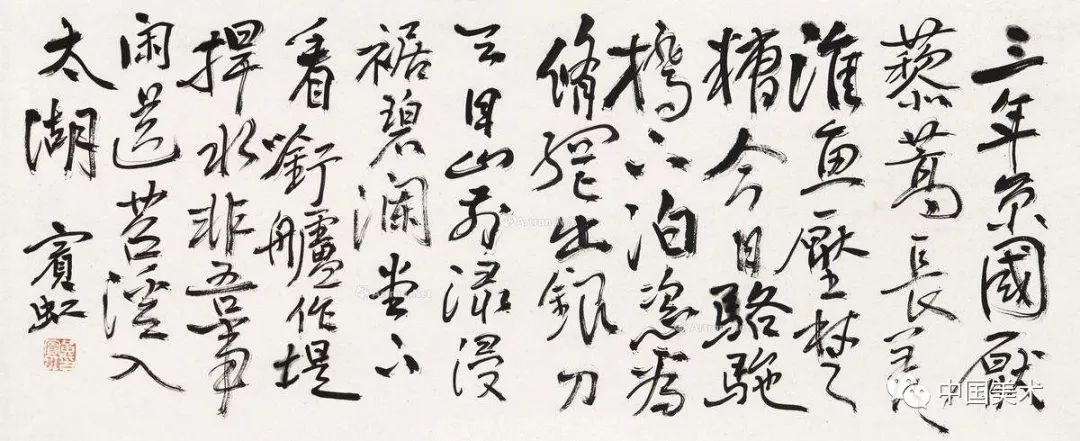 三年京國厭
藜蒿長羨
淮魚壓楚
糟今日駱駝
橋下泊恣
脩網出銀刀
天目山前淥浸
裾碧瀾堂下
看銜艫作堤
捍水非吾事
閑送苕溪入
太湖 賓虹
中国美术